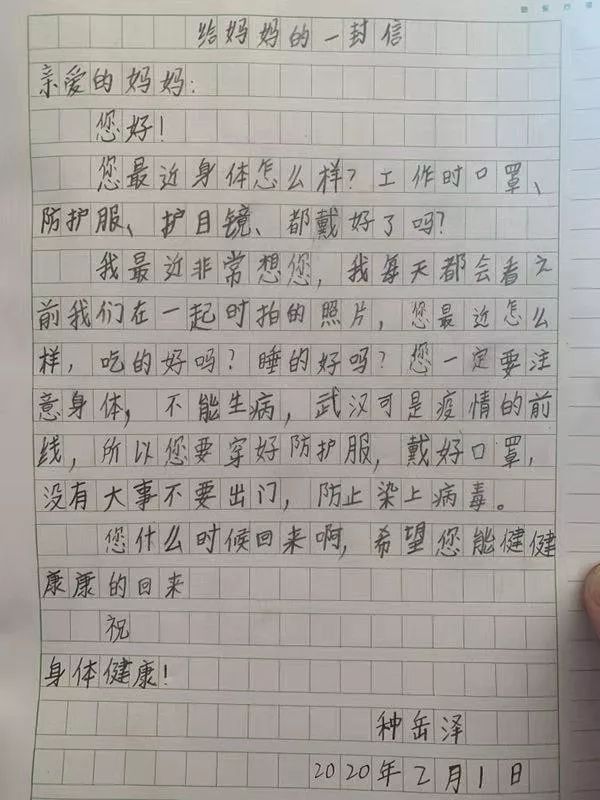 给妈妈的一封信
亲爱的妈妈:
您好!
您最近身体怎么样?工作时口罩、
防护服、护目镜、都戴好了吗?
我最近非常想您,我每天都会看之
前我们在一起时拍的照片,您最近怎么
样,吃的好吗?睡的好吗?您一定要注
意身体,不能生病,武汉可是疫情的前
线,所以您要穿好防护服,戴好口罩,
没有大事不要出门,防止染上病毒。
您什么时候回来啊,希望您能健健
康康的回来
祝
身体健康!
种岳泽
2020年2月1日